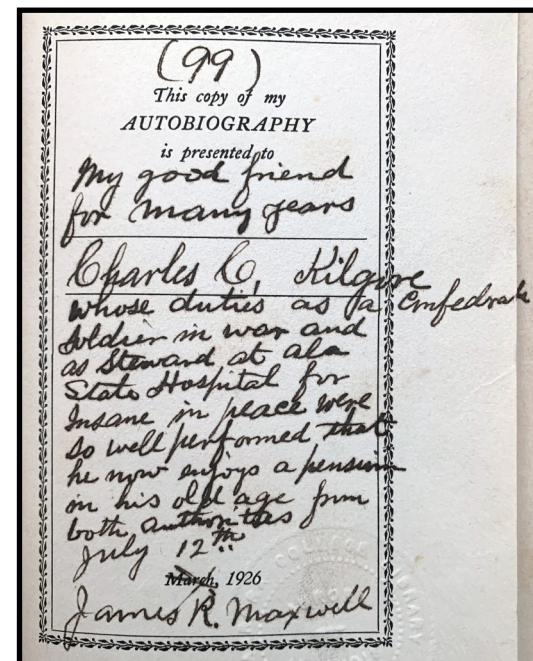 (99)
This copy of my
AUTOBIOGRAPHY
is presented to
My good friend
for many years
Charles C. Kilgore
whose duties as a Confederate
soldier in war and
as Steward at Ala
State Hospital for
Insane in peace were
so well performed that
he now enjoys a pension
in his old age from
both authorities
July 12th
March, 1926
James R. Maxwell
LIBRARY